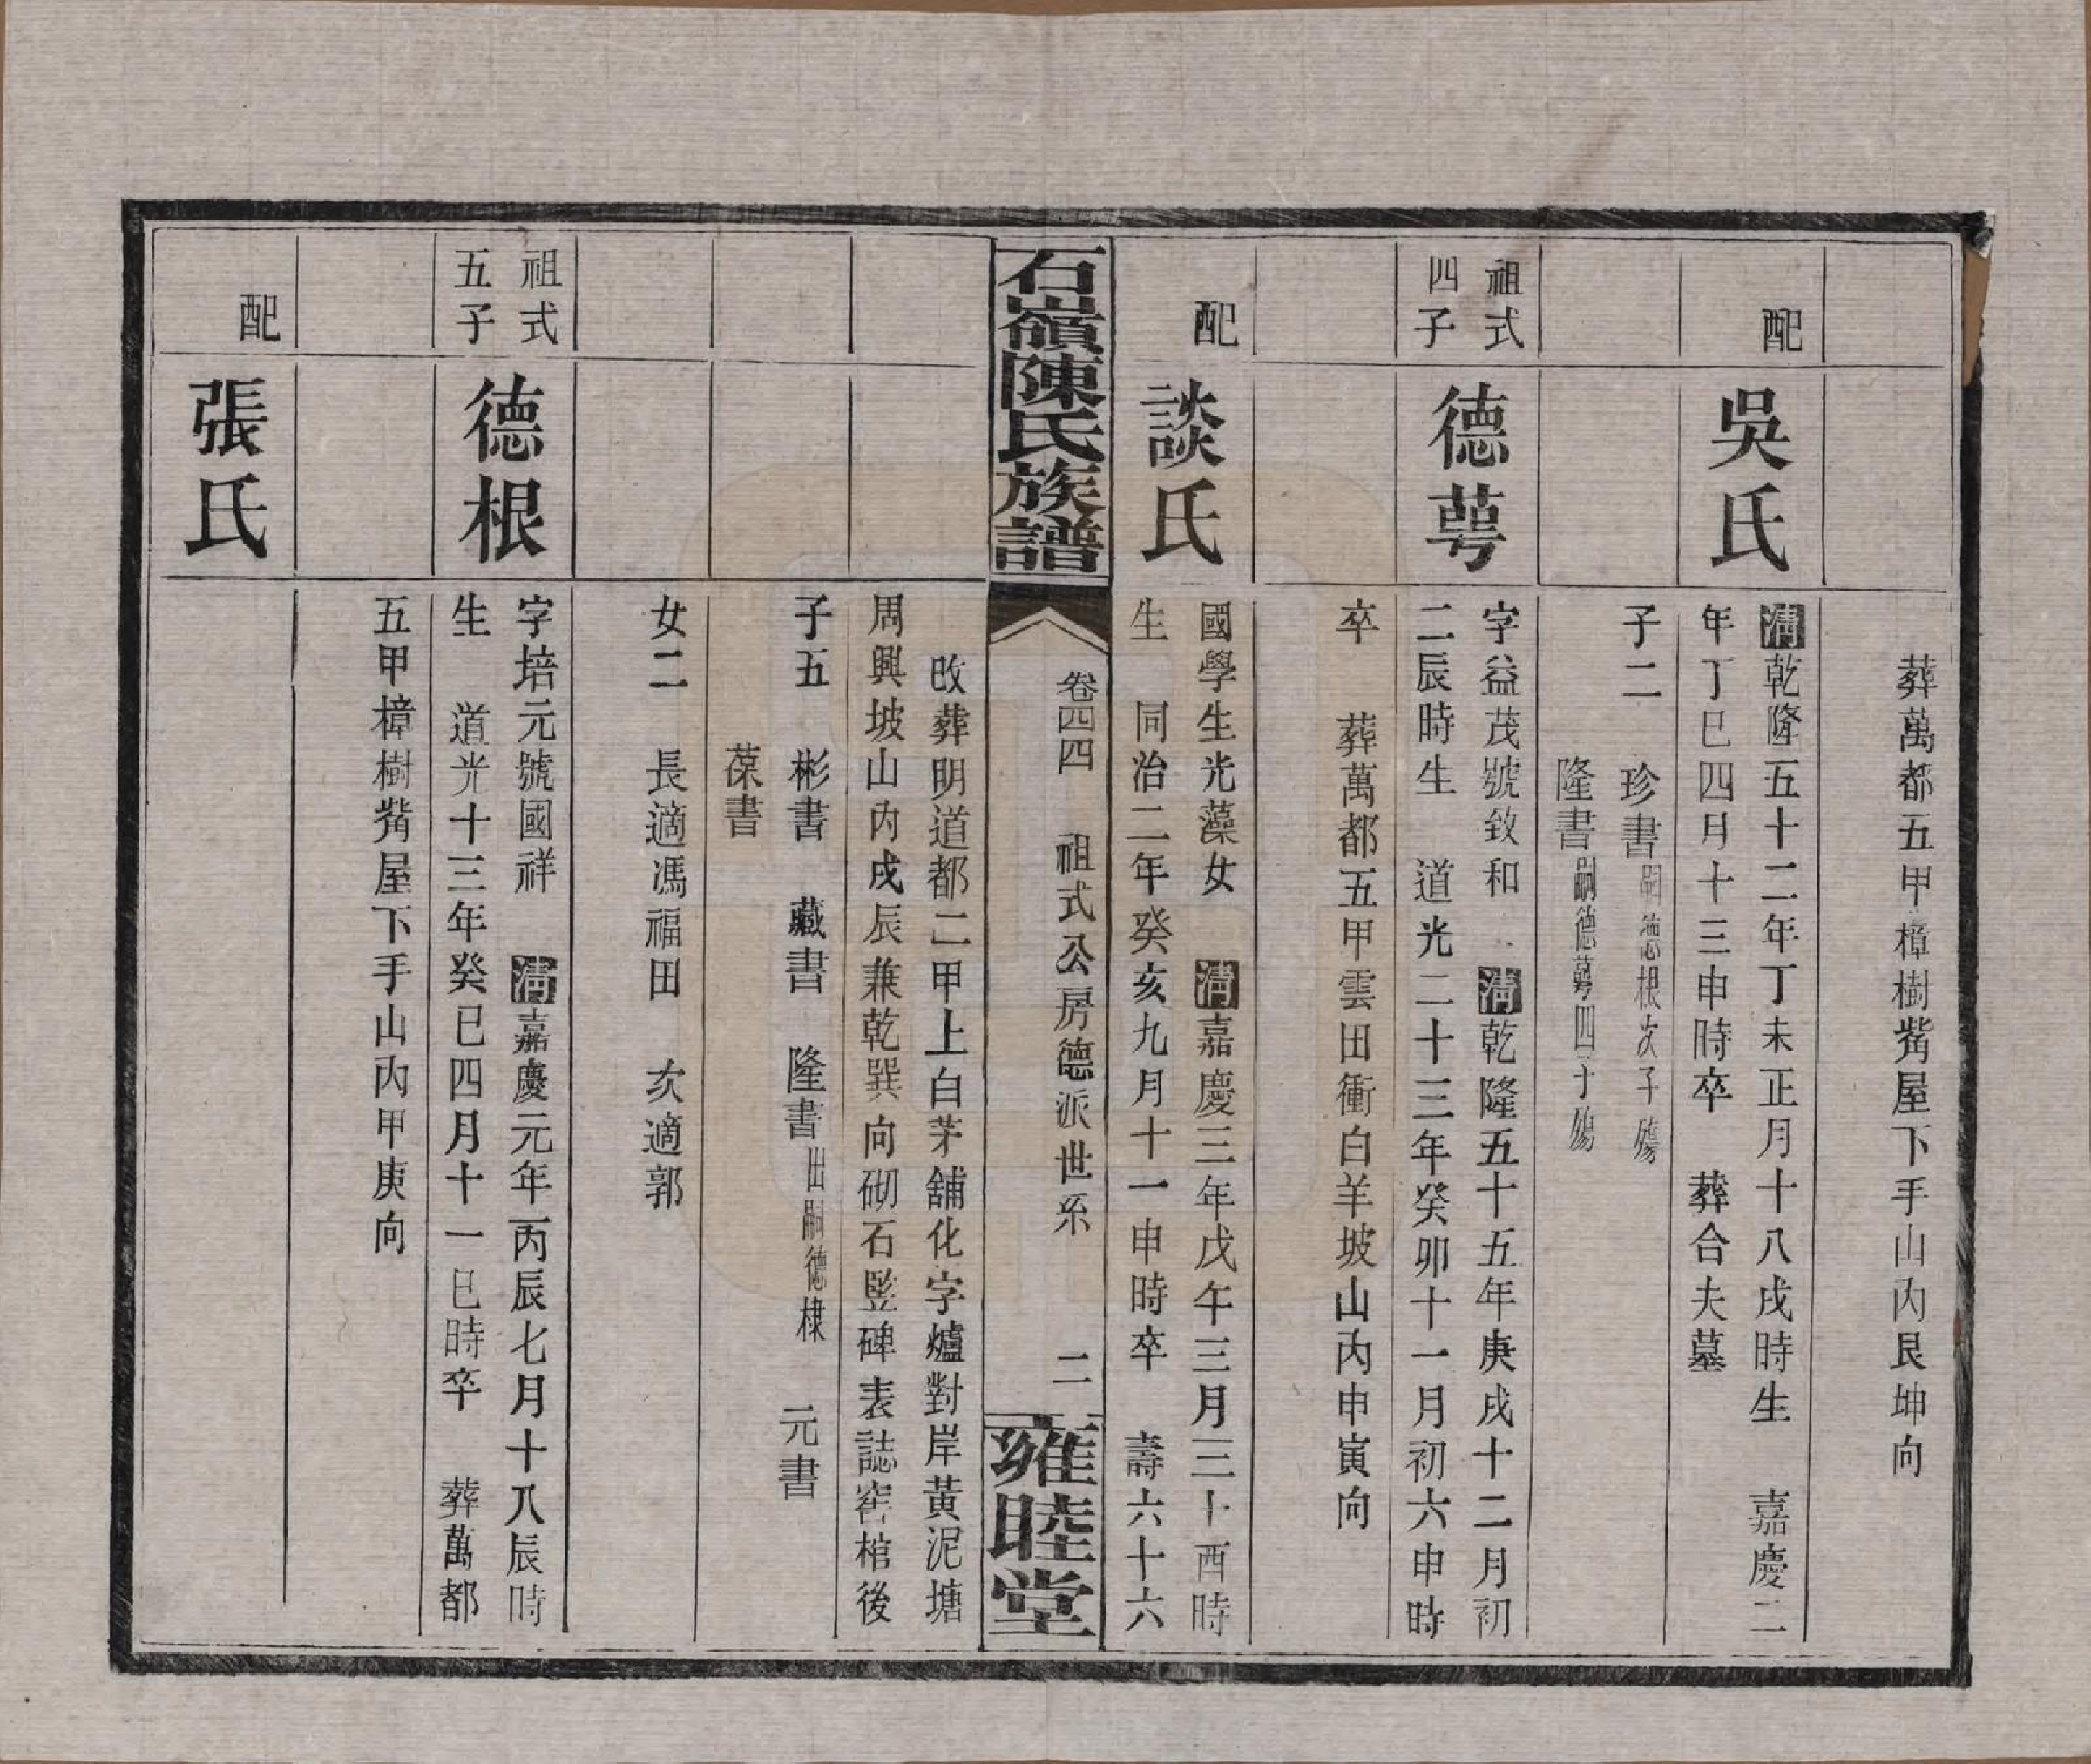 葬萬都五甲樟樹觜屋下手山內艮坤向
配
吳氏
清乾隆五十二年丁未正月十八戌時生　嘉慶二
年丁巳四月十三申時卒　葬合夫墓
子二　珍書嗣德根次子殤
隆書嗣德蕚四子殤
祖式
四子
德蕚
字益茂號致和　清乾隆五十五年庚戌十二月初
二辰時生　道光二十三年癸卯十一月初六申時
卒　葬萬都五甲雲田衝白羊坡山內申寅向
配
談氏
國學生光藻女　清嘉慶三年戊午三月三十酉時
生　同治二年癸亥九月十一申時卒　壽六十六
石嶺陳氏族譜
卷四四　祖式公房德派世系　二
雍睦堂
改葬明道都二甲上白茅舖化字爐對岸黃泥塘
周興坡山內戌辰兼乾巽向砌石豎碑表誌窖棺後
子五　彬書　藏書　隆書出嗣德棣　元書
葆書
女二　長適馮福田　次適郭
祖式
五子
德根
字培元號國祥　清嘉慶元年丙辰七月十八辰時
生　道光十三年癸巳四月十一巳時卒　葬萬都
五甲樟樹觜屋下手山內甲庚向
配
張氏